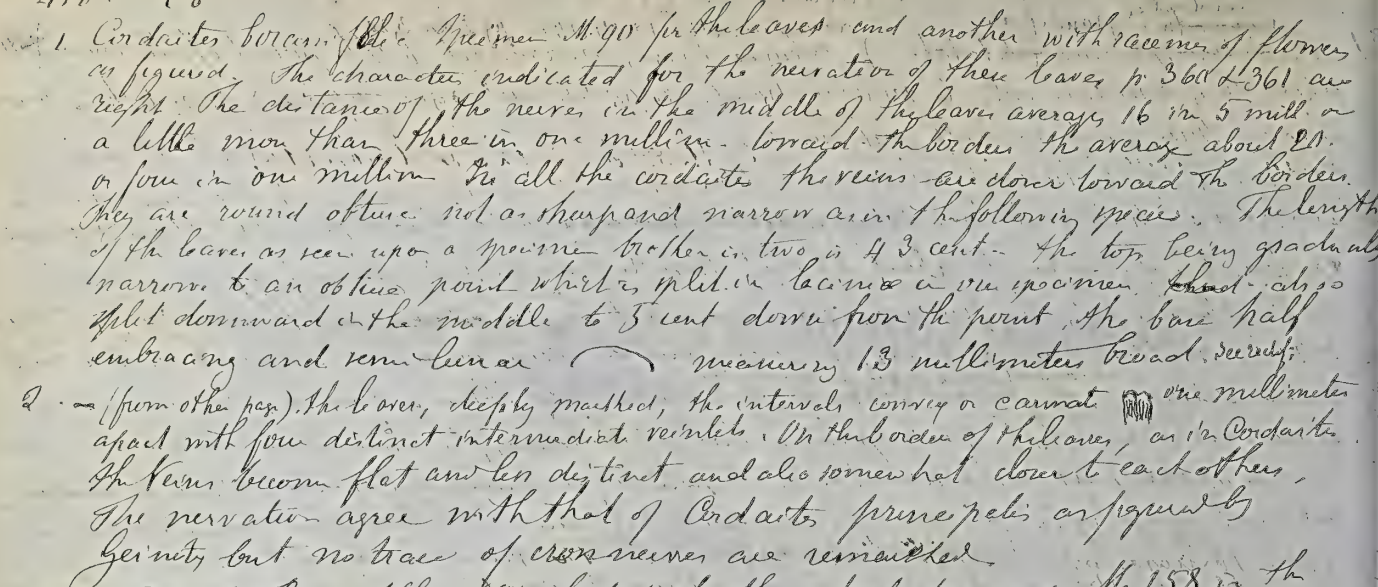 1. Cordaites Specimen M 90 for the leaves and another with racemes of flowers
as figured. The character indicated for the nervation of these leaves p 360 & 361 are
right The distance of the nerves in the middle of the leaves average 16 in 5 mill or
a little more than three in one millim - toward the borders the average about 20.
or four in one millim In all the cordaites the veins are closer toward the borders.
They are round obtuse not as sharp and narrow as in the following species. The length
of the leaves as seen upon a specimen broken in two is 43 cent - the top being gradually
narrowed to an obtuse point which is split in laciniae in one specimen also
split downward in the middle to 5 cent down from the point, the base half
embracing and semilunar measuring 13 millimeters broad
2 - (from other page). the leaves, deeply marked, the intervals convex or carinate one millimeter
apart with four distinct intermediate veinlets. On the borders of the leaves, as in Cordaites
the veins become flat and less distinct and also somewhat closer to each others,
The nervation agree with that of Cordaites principalis as figured by
Geinitz but no trace of cross nerves are remarked
M 158 in the